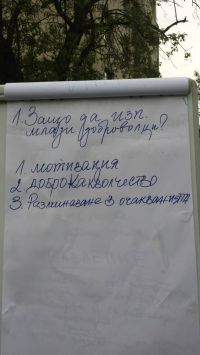 1. Защо да изп.
млади доброволци?
1. мотивация
2 доброкаквочество
3. Разминаване в очакванията